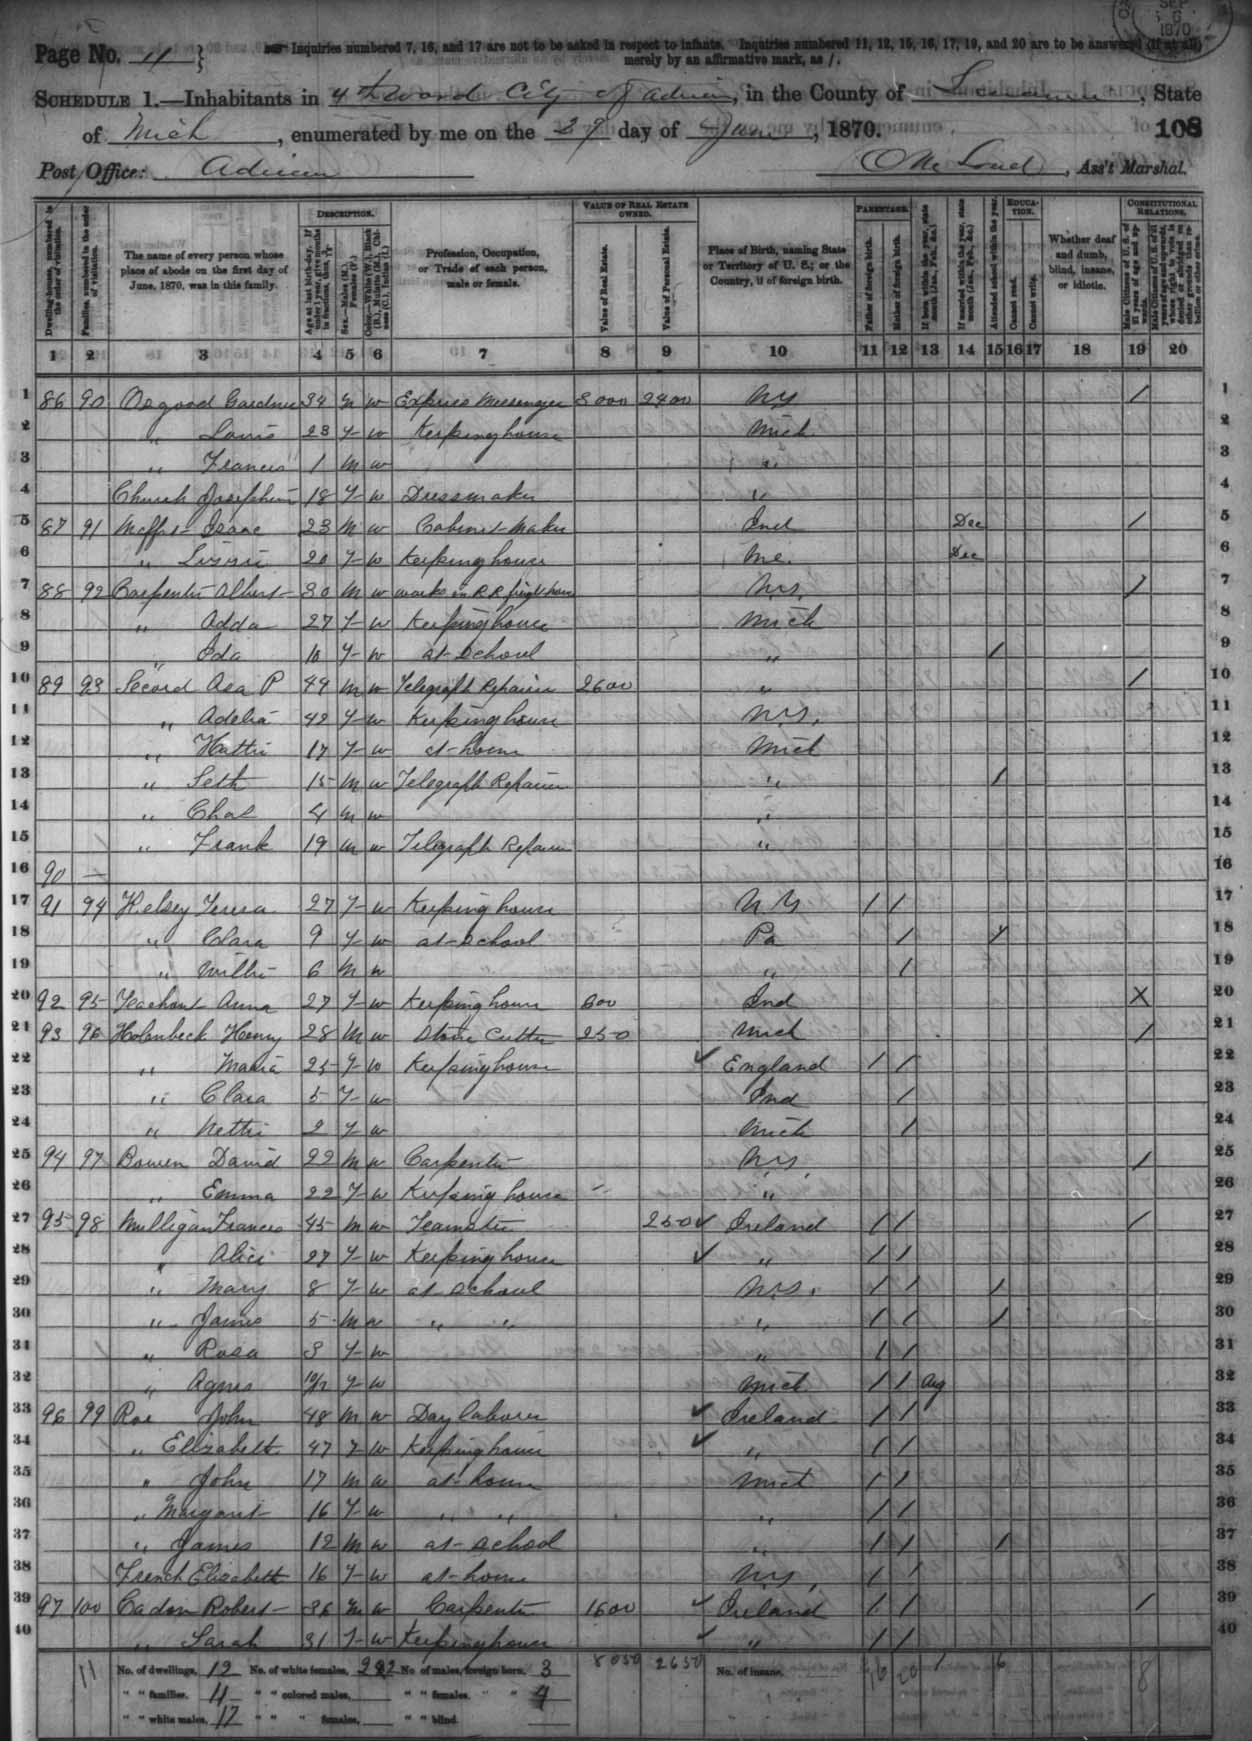 SEP 6 1870
Page No. 11 } Inquiries numbered 7, 16, and 17 are not to be asked in respect to infants. Inquiries numbered 11, 12, 15, 16, 17, 19, and 20 are to be answered (if at all) merely by an affirmative mark, as /.
SCHEDULE 1.—Inhabitants in 4th Ward City of Adrian, in the County of Lenawee, State
of Mich, enumerated by me on the 29 day of June, 1870. 108
Post Office: Adrian , Ass't Marshal.
Dwelling-houses, numbered in the order of visitation.
Families, numbered in the order of visitation.
The name of every person whose place of abode on the first day of June, 1870, was in this family.
DESCRIPTION.
Age at last birth-day. If under 1 year, give months in fractions, thus, 3/12
Sex.—Males (M.), Females (F.)
Color.—White (W.), Black (B.), Mulatto (M.), Chinese (C.), Indian (I.)
Profession, Occupation, or Trade of each person, male or female.
VALUE OF REAL ESTATE OWNED.
Value of Real Estate.
Value of Personal Estate.
Place of Birth, naming State or Territory of U. S.; or the Country, if of foreign birth.
PARENTAGE.
Father of foreign birth.
Mother of foreign birth.
If born within the year, state month (Jan, Feb, &c.)
If married within the year, state month (Jan, Feb, &c.)
EDUCATION.
Attended school within the year.
Cannot read.
Cannot write.
Whether deaf and dumb, blind, insane, or idiotic.
CONSTITUTIONAL RELATIONS.
Male Citizens of U. S. of 21 years of age and upwards.
Male Citizens of U. S. of 21 years of age and upwards, whose right to vote is denied or abridged on other grounds than rebellion or other crime.
1 2 3 4 5 6 7 8 9 10 11 12 13 14 15 16 17 18 19 20
1 86 90 Osgood Gardner 34 M W Express Messenger 3000 2400 N.Y / 1
2 " Louis 23 F W Keeping house Mich 2
3 " Francis 1 M W " 3
4 Church Josephine 18 F W Dressmaker " 4
5 87 91 Moffet Isaac 23 M W Cabinet Maker Ind Dec / 5
6 " Lizzie 20 F W Keeping house Me. Dec 6
7 88 92 Carpenter Albert 30 M W works in R R freight house N.Y. / 7
8 " Adda 27 F W Keeping house Mich 8
9 " Ida 10 F W at School " / 9
10 89 93 Secord Asa P 49 M W Telegraph Repairer 2600 " / 10
11 " Adelia 42 F W Keeping house N.Y. 11
12 " Hattie 17 F W at home Mich 12
13 " Seth 15 M W Telegraph Repairer " / 13
14 " Chas 4 M W " 14
15 " Frank 19 M W Telegraph Repairer " 15
16 90 — 16
17 91 94 Kelsey Teresa 27 F W Keeping house N Y / / 17
18 " Clara 9 F W at School Pa / / 18
19 " Willie 6 M W " / 19
20 92 95 Anna 27 F W Keeping house 600 Ind X 20
21 93 96 Holenbeck Henry 28 M W Stone Cutter 250 Mich / 21
22 " Maria 25 F W Keeping house ✓ England / / 22
23 " Clara 5 F W Ind / 23
24 " Nettie 2 F W Mich / 24
25 94 97 Bowen David 22 M W Carpenter N.Y. / 25
26 " Emma 22 F W Keeping house " 26
27 95 98 Mulligan Francis 45 M W Teamster 250 ✓ Ireland / / / 27
28 " Alice 27 F W Keeping house ✓ " / / 28
29 " Mary 8 F W at School N.Y. / / / 29
30 " James 5 M W " " " / / / 30
31 " Rosa 3 F W " / / 31
32 " Agnes 10/12 F W Mich / / Aug 32
33 96 99 Roe John 48 M W Day laborer ✓ Ireland / / 33
34 " Elizabeth 47 F W Keeping house ✓ " / / 34
35 " John 17 M W at home Mich / / 35
36 " Margaret 16 F W " " " / / 36
37 " James 12 M W at School " / / / 37
38 French Elizabeth 16 F W at home N.Y. / / 38
39 97 100 Cadon Robert 36 M W Carpenter 1600 ✓ Ireland / / / 39
40 " Sarah 31 F W Keeping house ✓ " / / 40
11 No. of dwellings, 12 No. of white females, 22 No. of males, foreign born, 3 8050 2650 No. of insane, 16 20 1 6 8
" " families. 11 " " colored males, " " females, " " 4
" " white males, 17 " " " females, " " blind